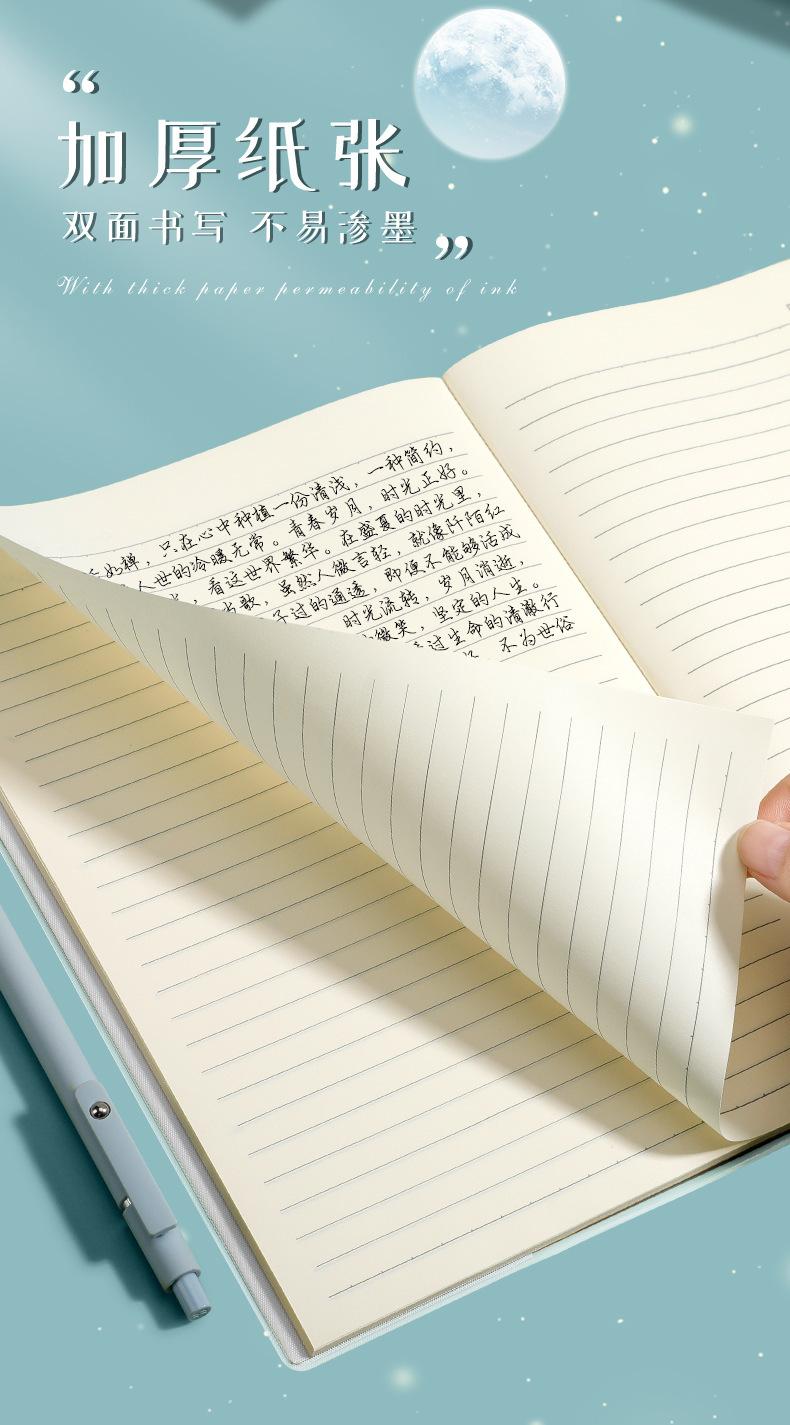 “
加厚纸张
双面书写 不易渗墨
”
With thick paper permeability of ink
如禅，只在心中种植一份清浅，一种简约，
人世的冷暖无常。青春岁月，时光正好。
，看这世界繁华。在盛夏的时光里，
歌，虽然人微言轻，就像阡陌红
子过的通透，即便不能够活成
时光流转，岁月消逝，
微笑，坚定的人生。
过生命的清澈行
不为世俗